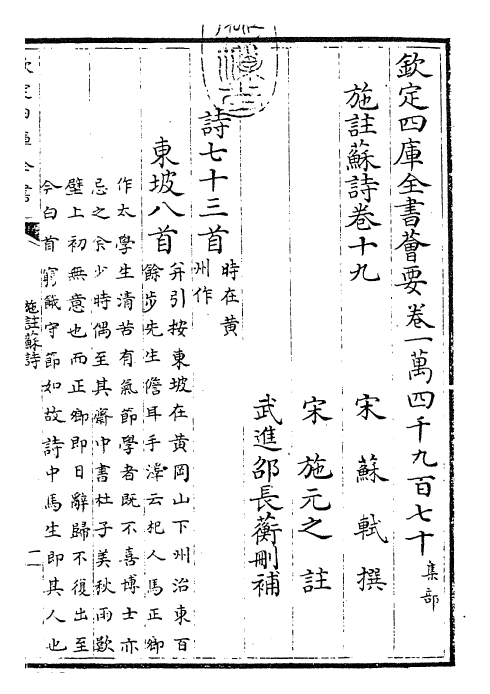 欽定四庫全書薈要卷一萬四千九百七十 集部
施註蘇詩卷十九
宋 蘇軾 撰
宋 施元之 註
武進邵長蘅刪補
詩七十三首 時在黃
州作
東坡八首 并引按東坡在黃岡山下州治東百
餘步先生儋耳手澤云杞人馬正卿
作太學生清苦有氣節學者既不喜博士亦
忌之余少時偶至其齋中書杜子美秋雨歎
壁上初無意也而正卿即日辭歸不復出至
今白首窮餓守節如故詩中馬生即其人也
欽定四庫全書
施註蘇詩
一